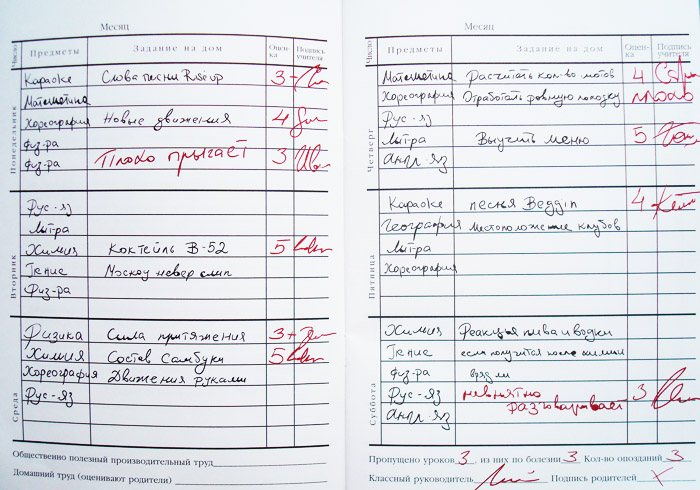 Месяц
Число Предметы Задание на дом Оцен-ка Подпись учителя
Понедельник
Караоке Слова песни Rise up 3+
Математика
Хореография Новые движения 4
Физ-ра
Физ-ра Плохо прыгает 3
Вторник
Рус-яз
Литра
Химия Коктейль B-52 5
Пение Москоу невер слип
Физ-ра
Среда
Физика Сила притяжения 3+
Химия Состав Самбуки 5
Хореография Движения руками
Рус-яз
Общественно полезный производительный труд
Домашний труд (оценивают родители)
Месяц
Число Предметы Задание на дом Оцен-ка Подпись учителя
Четверг
Математика Расчитать кол-во шотов 4
Хореография Отработать ровную походку
Рус-яз
Литра Выучить меню 5
Англ-яз
Пятница
Караоке песня Beggin 4
География Местоположение клубов
Литра
Хореография
Суббота
Химия Реакция пива и водки
Пение если получится после химии
Физ-ра вряд ли
Рус-яз невнятно разговаривает 3
Англ-яз
Пропущено уроков 3 из них по болезни 3 Кол-во опозданий 3
Классный руководитель Подпись родителей x